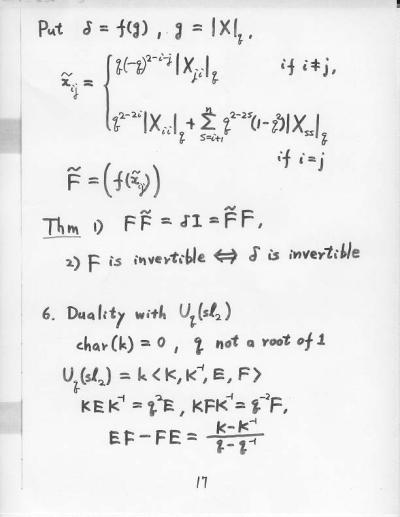 Put δ = f(g), g = |X|_q.
x̃_ij = { q(-q)^{2-i-j} |X_ji|_q if i≠j,
q^{2-2i} |X_ii|_q + Σ_{s=i+1}^{n} q^{2-2s}(1-q²)|X_ss|_q
if i=j
F̃ = (f(x̃_ij))
Thm 1) FF̃ = δI = F̃F,
2) F is invertible ⇔ δ is invertible
6. Duality with U_q(sl₂)
char(k) = 0, q not a root of 1
U_q(sl₂) = k<K, K⁻¹, E, F>
KEK⁻¹ = q²E, KFK⁻¹ = q⁻²F,
EF - FE = (K - K⁻¹)/(q - q⁻¹)
17